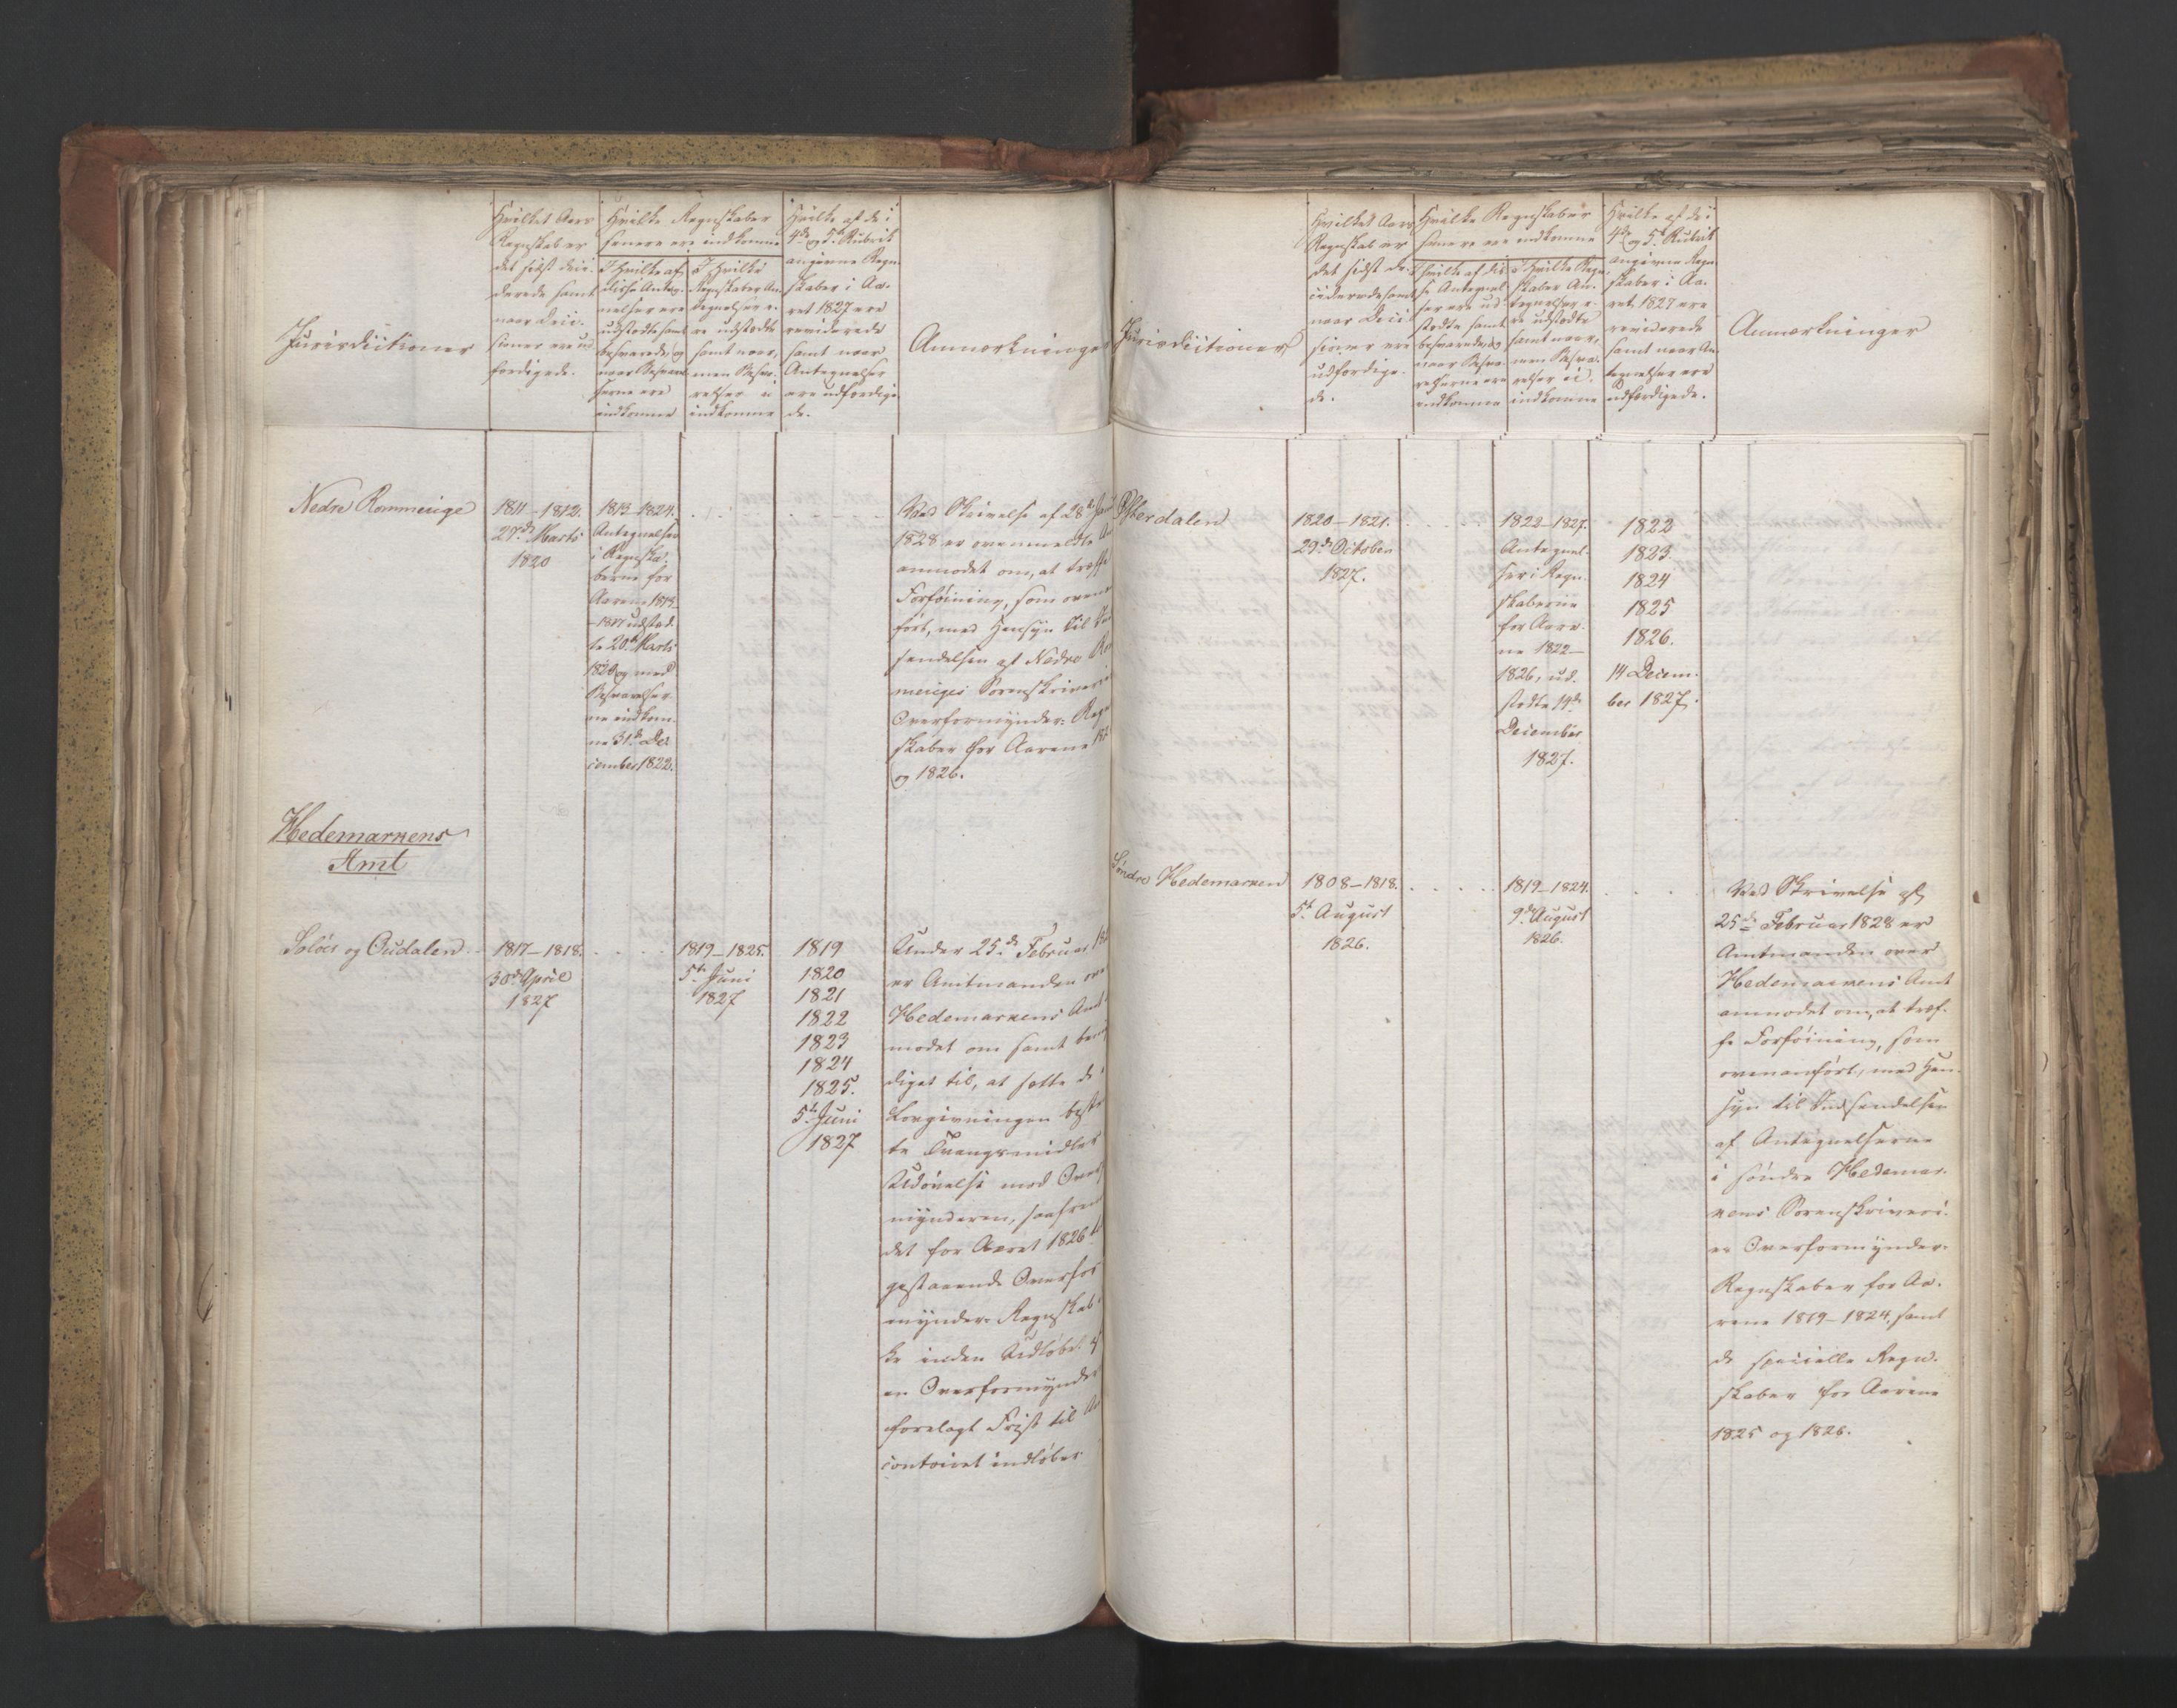 Jurisdictioner
Hvilket Aars
Regnskab er
det sidst deci-
derede samt
naar Deci-
sioner ere ud
færdigede.
Hvilke Regnskaber
senere ere indkomne
I hvilke af
disse Anteg-
nelser ere
udstædte samt
besvarede, og
naar Besvarel-
serne ere
indkomne
I hvilke
Regnskaber An-
tegnelser e-
re udstædte
samt naar,
men Besva-
relser ei
indkomne
Hvilke af de i
4de og 5te Rubrik
angivne Regn-
skaber i Aa-
ret 1827 ere
reviderede
samt naar
Antegnelser
ere udfærdige-
de.
Anmærkninger
Nedre Rommerige
1811-1812.
27de Marts
1820
1813-1824.
Antegnelser
i Regnska-
berne for
Aarene 1813-
-1817 udstæd-
te 20de Marts
1820 og med
Besvarelser-
ne indkom-
ne 31te De-
cember 1822.
Ved Skrivelse af 28de
1828 er ovenmeldte
anmodet om, at træffe
Forføining, som oven
ført, med Hensyn til
sendelsen af Nedre
meriges Sorenskriverie
Overformynder-
skaber for Aarene
og 1826.
Hedemarkens
Amt
Soløer og Oudalen
1817-1818.
30de April
1827
1819-1825.
5te Juni
1827
1819
1820
1821
1822
1823
1824
1825.
5te Juni
1827
Under 25de Februar
er Amtmanden
Hedemarkens Amt
modet om samt
diget til, at sætte de i
Lovgivningen
te Tvangsmidler
Udøvelse mod
mynderen, saafremt
det for Aaret 1826
gestaaende
mynder- Regnskab
ke inden Udløbet af
en Overformynder
forelagt Frist til
contoiret indløber
Jurisdictioner
Hvilket Aars
Regnskab er
det sidst de-
ciderede samt
naar Deci-
sioner ere
udfærdige-
de.
Hvilke Regnskaber
senere ere indkomne
I hvilke af dis-
se Antegnel-
ser ere ud
stædte samt
besvarede, og
naar Besva-
relserne ere
indkomne
I hvilke Regn-
skaber An-
tegnelser e-
re udstædte
samt naar,
men Besva-
relser ei
indkomne
Hvilke af de i
4de og 5te Rubrik
angivne Regn-
skaber i Aa-
ret 1827 ere
reviderede
samt naar An-
tegnelser ere
udfærdigede.
Anmærkninger
Østerdalen
1820-1821.
29de October
1827.
1822-1827.
Antegnel-
ser i Regn-
skaberne
for Aare-
ne 1822-
1826, ud-
stædte 14de
December
1827.
1822
1823.
1824
1825
1826.
14 Decem-
ber 1827.
Søndre Hedemarken
1808-1818.
5te August
1826.
1819-1824.
9de August
1826.
Ved Skrivelse af
25de Februar 1828 er
Amtmanden over
Hedemarkens Amt
anmodet om, at træf-
fe Forføining, som
ovenanført, med Hen-
syn til Indsendelsen
af Antegnelserne
i søndre Hedemar-
kens Sorenskriveri-
es Overformynder-
Regnskaber for Aa-
rene 1819-1824, samt
de specielle Regn-
skaber for Aarene
1825 og 1826.